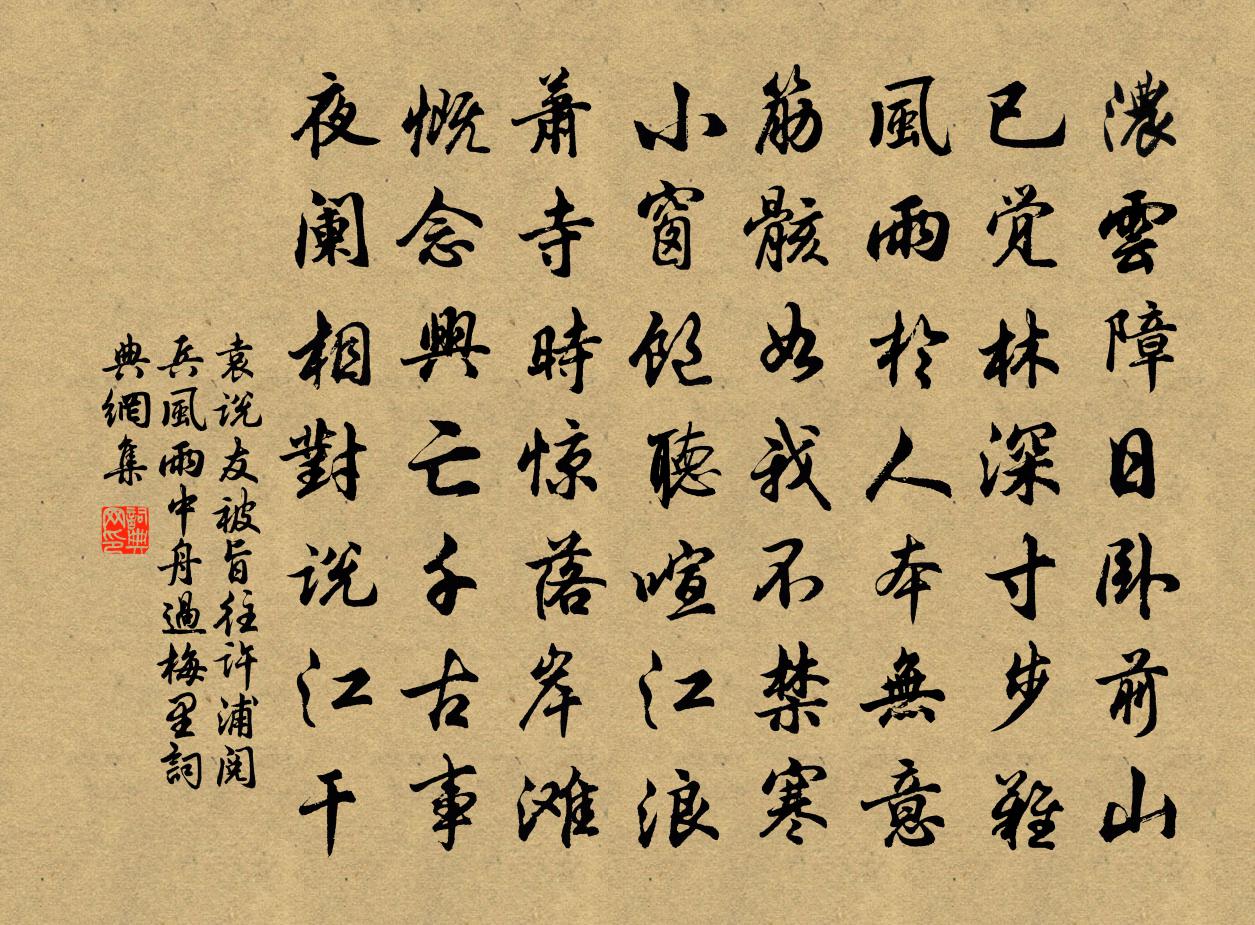 濃雲障日卧前山
已覚林深寸步難
風雨於人本無意
筋骸如我不禁寒
小窗飽聽喧江浪
蕭寺時惊落岸滩
慨念興亡千古事
夜阑相對说江干
袁说友被旨往许浦阅
兵風雨中舟過梅里詞
典網集
詞典网印